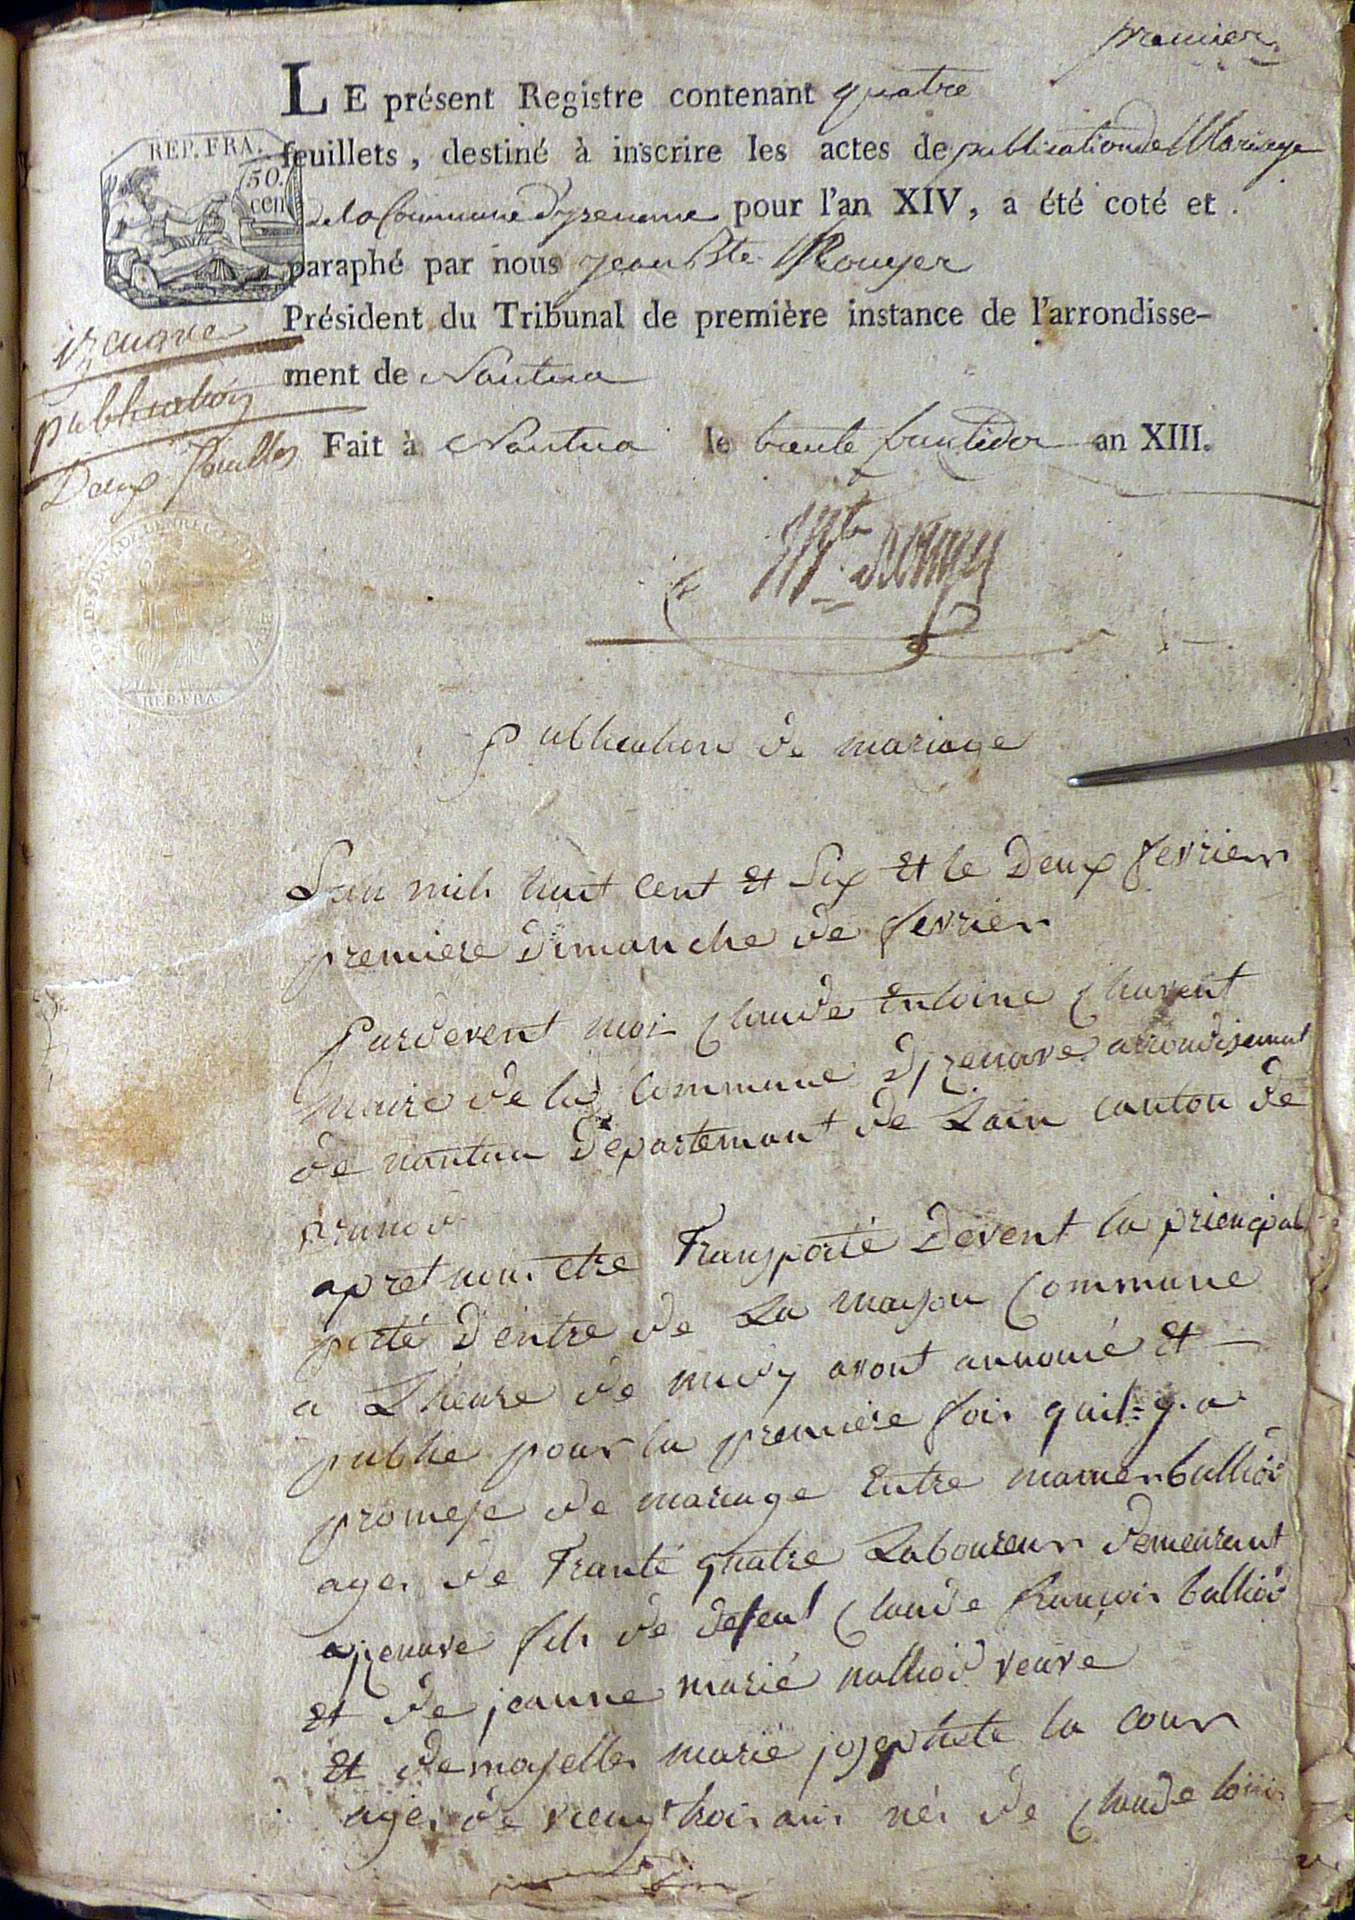 premier
LE présent Registre contenant quatre
REP. FRA.
feuillets, destiné à inscrire les actes de publication de Mariage
50.
cen
de la Commune d'yzenave pour l'an XIV, a été coté et
paraphé par nous jean Bte Rouyer
Président du Tribunal de première instance de l'arrondisse-
yzenave
ment de Nantua
publication
Fait à Nantua le trente fructidor an XIII.
Deux feuilles
REP. FRA.
publication de mariage
Lan mils huit Cent et Six et le Deux fevrier
premiere Dimanche de fevrier
pardevent moi Claude Entoine Charent
maire de la Commune dyzenave arrondisement
de nantua Departemant de Lain canton de
apret nous etre Transporté Devent la priencipal
porté D'entre de La mayson Commune
a Lheure de midy avont annoncé et
publié pour la premiere fois quil y a
promese de mariage Entre balliod
ages de Tranté quatre Laboureur demeurant
fils de defeut Claude françois balliod
et de jeanne marie balliod veuve
et demayselle marie josephte la cour
ages de vieng trois ans nés de Claude louis